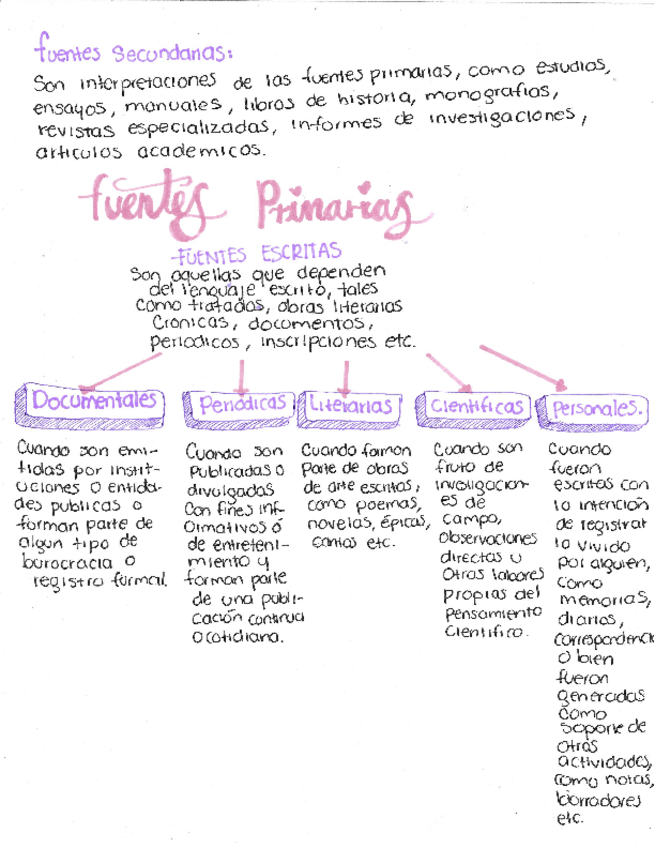 fuentes Secundarias:
Son interpretaciones de las fuentes primarias, como estudios,
ensayos, manuales, libros de historia, monografias,
revistas especializadas, informes de investigaciones,
articulos academicos.
fuentes Primarias
FUENTES ESCRITAS
Son aquellas que dependen
del lenguaje escrito, tales
como tratados, obras literarias
Cronicas, documentos,
periodicos, inscripciones etc.
Documentales
Cuando son emi-
tidas por instit-
uciones o entida-
des publicas o
forman parte de
algun tipo de
burocracia o
registro formal.
Periódicas
Cuando son
Publicadas o
divulgadas
Con fines inf-
ormativos ó
de entreteni-
miento y
forman parte
de una publi-
cación continua
o cotidiana.
Literarias
Cuando forman
Parte de obras
de arte escritas,
como poemas,
novelas, épicas,
cantos etc.
Cientificas
Cuando son
fruto de
investigacion-
es de
campo,
observaciones
directas u
Otras labores
propias del
Pensamiento
Cientifico.
Personales.
Cuando
fueron
escritas con
la intención
de registrar
lo vivido
por alguien,
como
memorias,
diarios,
correspondencia
O bien
fueron
generadas
Como
Soporte de
otras
actividades,
como notas,
borradores
etc.